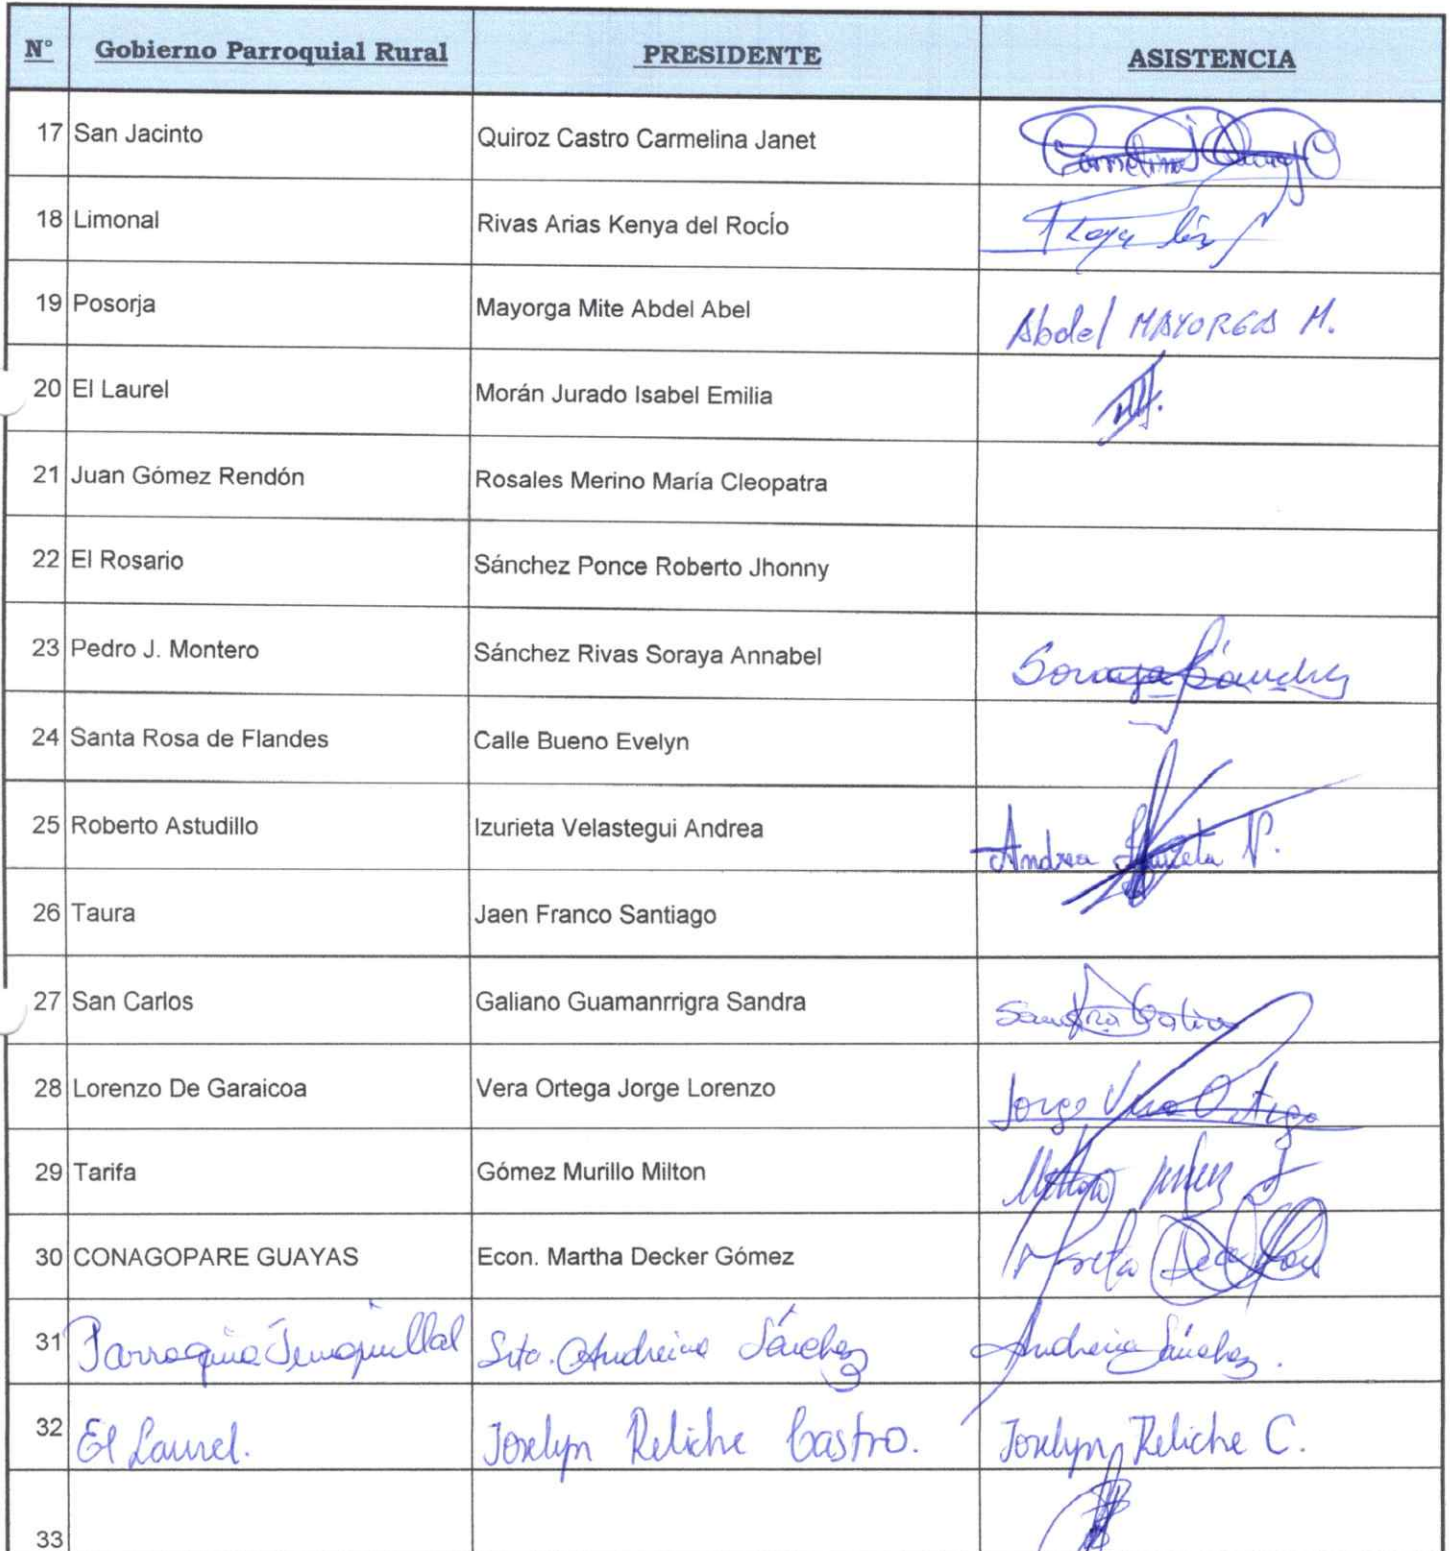 N° Gobierno Parroquial Rural PRESIDENTE ASISTENCIA
17 San Jacinto Quiroz Castro Carmelina Janet
18 Limonal Rivas Arias Kenya del Rocío
19 Posorja Mayorga Mite Abdel Abel Abdel MAYORGA M.
20 El Laurel Morán Jurado Isabel Emilia
21 Juan Gómez Rendón Rosales Merino María Cleopatra
22 El Rosario Sánchez Ponce Roberto Jhonny
23 Pedro J. Montero Sánchez Rivas Soraya Annabel Soraya Sánchez
24 Santa Rosa de Flandes Calle Bueno Evelyn
25 Roberto Astudillo Izurieta Velastegui Andrea Andrea Izurieta V.
26 Taura Jaen Franco Santiago
27 San Carlos Galiano Guamanrrigra Sandra Sandra
28 Lorenzo De Garaicoa Vera Ortega Jorge Lorenzo Jorge Vera Ortega
29 Tarifa Gómez Murillo Milton
30 CONAGOPARE GUAYAS Econ. Martha Decker Gómez
31 Parroquia Srta. Andreina Sánchez Andreina Sánchez.
32 El Laurel. Joselyn Reliche Castro. Joselyn Reliche C.
33